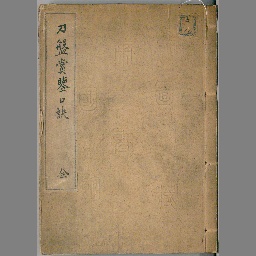 刀盤賞鑒口訣
全